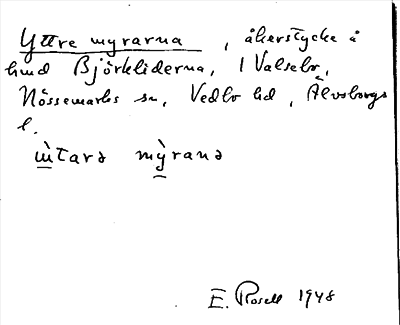 Yttre myrarna, åkerstycke å
hmd Björkliderna, 1 Valsebo,
Nössemarks sn, Vedbo hd, Älvsborgs
l.
ùtarə mỳranə
E. Rosell 1948